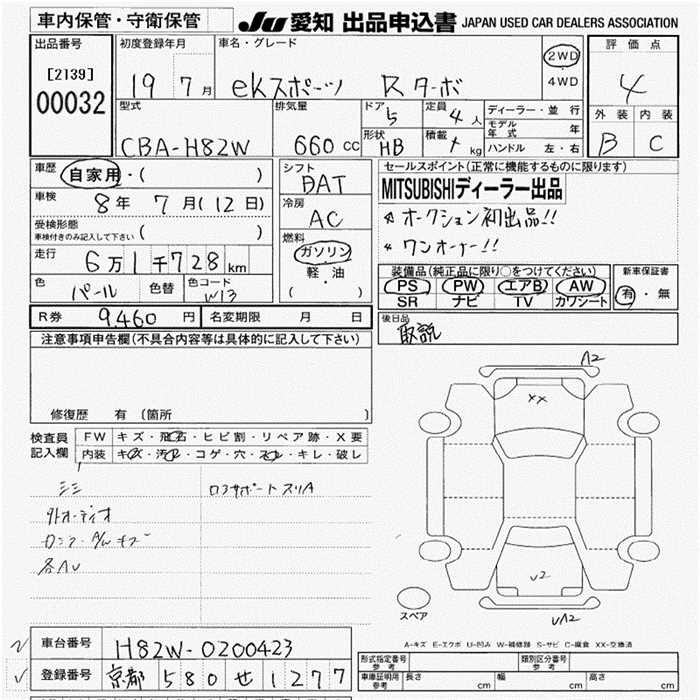 車内保管・守衛保管
JU 愛知 出品申込書 JAPAN USED CAR DEALERS ASSOCIATION
出品番号 初度登録年月 車名・グレード 評価点
[2139]
00032
19 7月 eKスポーツ Rターボ
2WD
4WD
4
外装 内装
B C
型式 排気量 ドア 5 定員 4人 ディーラー・並行
モデル年式 年
CBA-H82W 660cc 形状 HB 積載 kg ハンドル 左・右
車歴 自家用・( )
車検 8年 7月(12日)
受検形態
車検付きのみ記入して下さい ( )
走行 6万1千728km
色 パール 色替 色コード W13
シフト DAT
冷房 AC
燃料
ガソリン
軽・油
( )
セールスポイント(正常に機能するものに限ります)
MITSUBISHIディーラー出品
☆オークション初出品!!
ワンオーナー!!
装備品(純正品に限り○をつけてください) 新車保証書
PS PW エアB AW
SR ナビ TV カワシート
有・無
R券 9,460円 名変期限 月 日
後日品
取説
注意事項申告欄(不具合内容等は具体的に記入して下さい)
修復歴 有 〔箇所 〕
検査員記入欄
FW キズ・飛石・ヒビ割・リペア跡・X要
内装 キズ・汚れ・コゲ・穴・スレ・キレ・破レ
外オーディオ
各AU
A2
XX
U2
UA2
スペア
A-キズ E-エクボ U-凹み W-補修跡 S-サビ C-腐食 XX-交換済
車台番号 H82W-0200423
登録番号 京都 580 せ 1277
形式指定番号 参考 類別区分番号 参考
車庫証明用 参考 長さ cm 幅 cm 高さ cm